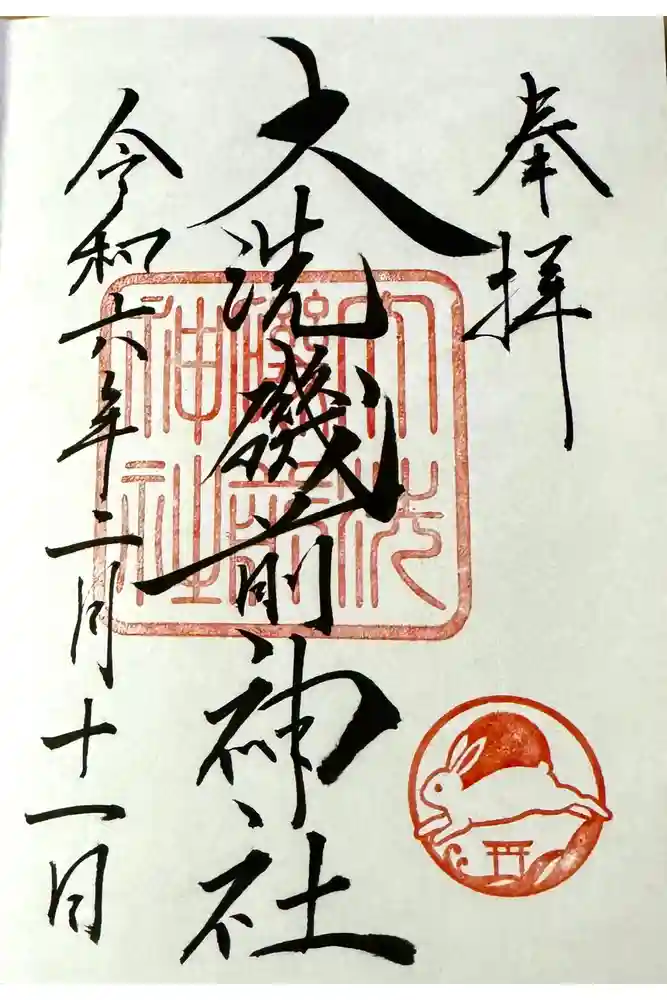 奉拝
大洗磯前神社
令和六年二月十一日
大洗
磯前
神社